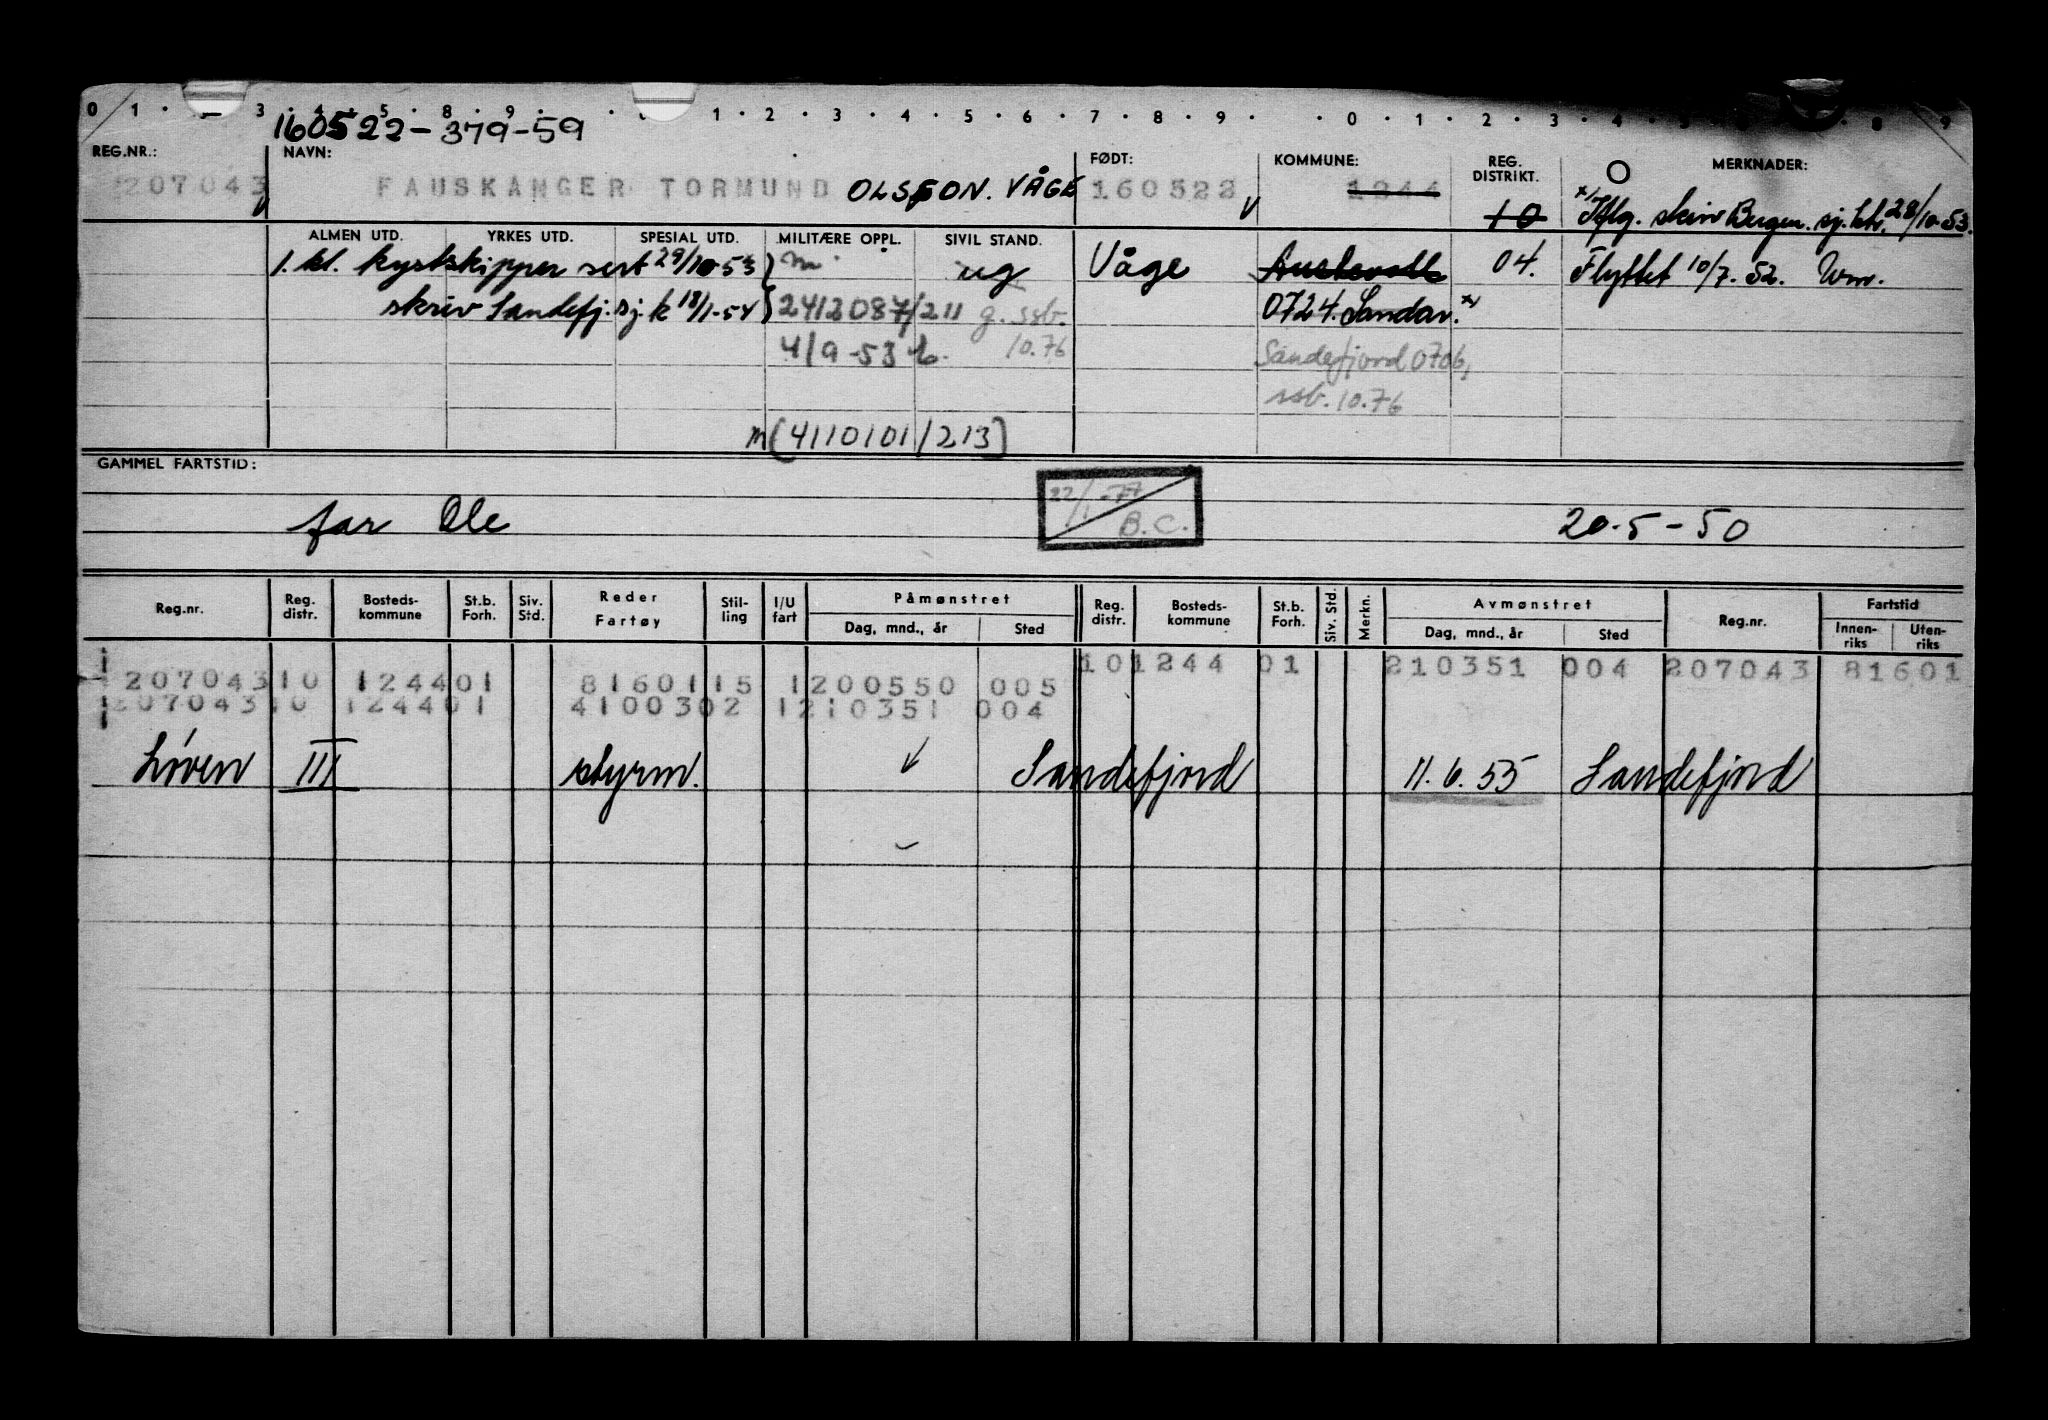 0 1 . . 3 . 4 . 5 . 8 . 9 . . 1 . 2 . 3 . 4 . 5 . 6 . 7 . 8 . 9 . . 0 . 1 . 2 . 3 . 4 . 5 . 6 . . 8 . 9
160522-379-59
REG.NR.: NAVN: FØDT: KOMMUNE: REG. DISTRIKT. MERKNADER:
207043 FAUSKANGER TORMUND OLSSON. VÅGE 160522 1244 10 skriv Bergen. sj. ktr. 28/10-53.
ALMEN UTD. YRKES UTD. SPESIAL UTD. MILITÆRE OPPL. SIVIL STAND.
1. kl. kystskipper sert 29/10-53 m ug Våge Austevoll 04. Flyttet 10/7. 52. Wm.
skriv Sandefj. sj. k 18/1-54 2412087/211 g. ssb. 0724. Sandar. x/
4/9-53 10.76 Sandefjord 0706,
ssb. 10.76
m (4110101/213)
GAMMEL FARTSTID:
22/1-77
far Ole B.C. 20-5-50
Reg.nr. Reg. distr. Bosteds- kommune St.b. Forh. Siv. Std. Reder Fartøy Stil- ling I/U fart Påmønstret Dag, mnd., år Sted Reg. distr. Bosteds- kommune St.b. Forh. Siv. Std. Merkn. Avmønstret Dag, mnd., år Sted Reg.nr. Fartstid Innen- riks Uten- riks
101244 01 210351 004 207043 81601
20704310 124401 8160115 1200550 005
20704310 124401 4100302 1210351 004
Løven III styrm. Sandefjord 11.6.55 Sandefjord